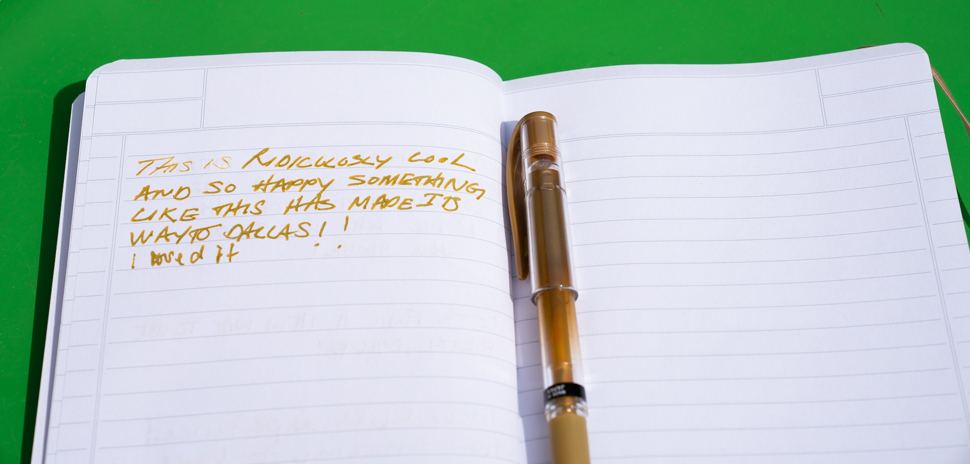 THIS IS RIDICULOSLY COOL
AND SO HAPPY SOMETHING
LIKE THIS HAS MADE ITS
WAY TO DALLAS! !
I loved it